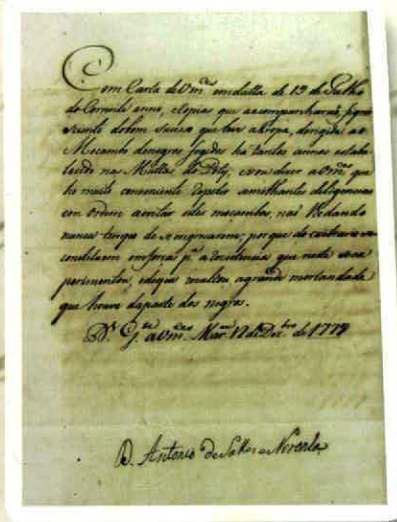 Com Carta de Vm.ce em datta de 19 de Julho
do Corrente anno, e copias que a acompanharaõ, fiquei
sciente do bom sucesso que teve a tropa, dirigida ao
Mocambo de negros fugidos há tantos annos estabe
lecido nas Mattas do Poty, e sou dizer a Vm.ce que
he muito conveniente repetir semilhantes deligencias
em ordem a evitar estes mocambos, naõ lhe dando
nunca tempo de se engrossarem, porque do contrario se
constituem em força p.a a rezistencia que nesta se ex
perimentou, e de que rezultou a grande mortandade
que houve da parte dos negros.
D.s G.de a Vm.ce Mar.am 17 de Dez.bro de 1779
D. Antonio de Salles e Noronha